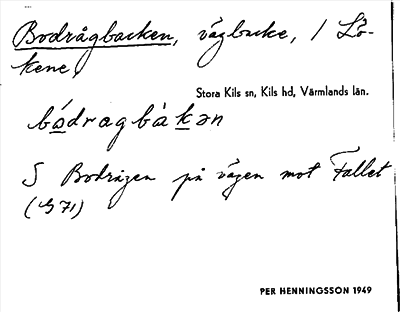 Bodrågbacken, vägbacke, / Lö-
kene,
Stora Kils sn, Kils hd, Värmlands län.
bódragbàkən
S Bodrågen på vägen mot Fallet
(G 71)
PER HENNINGSSON 1949